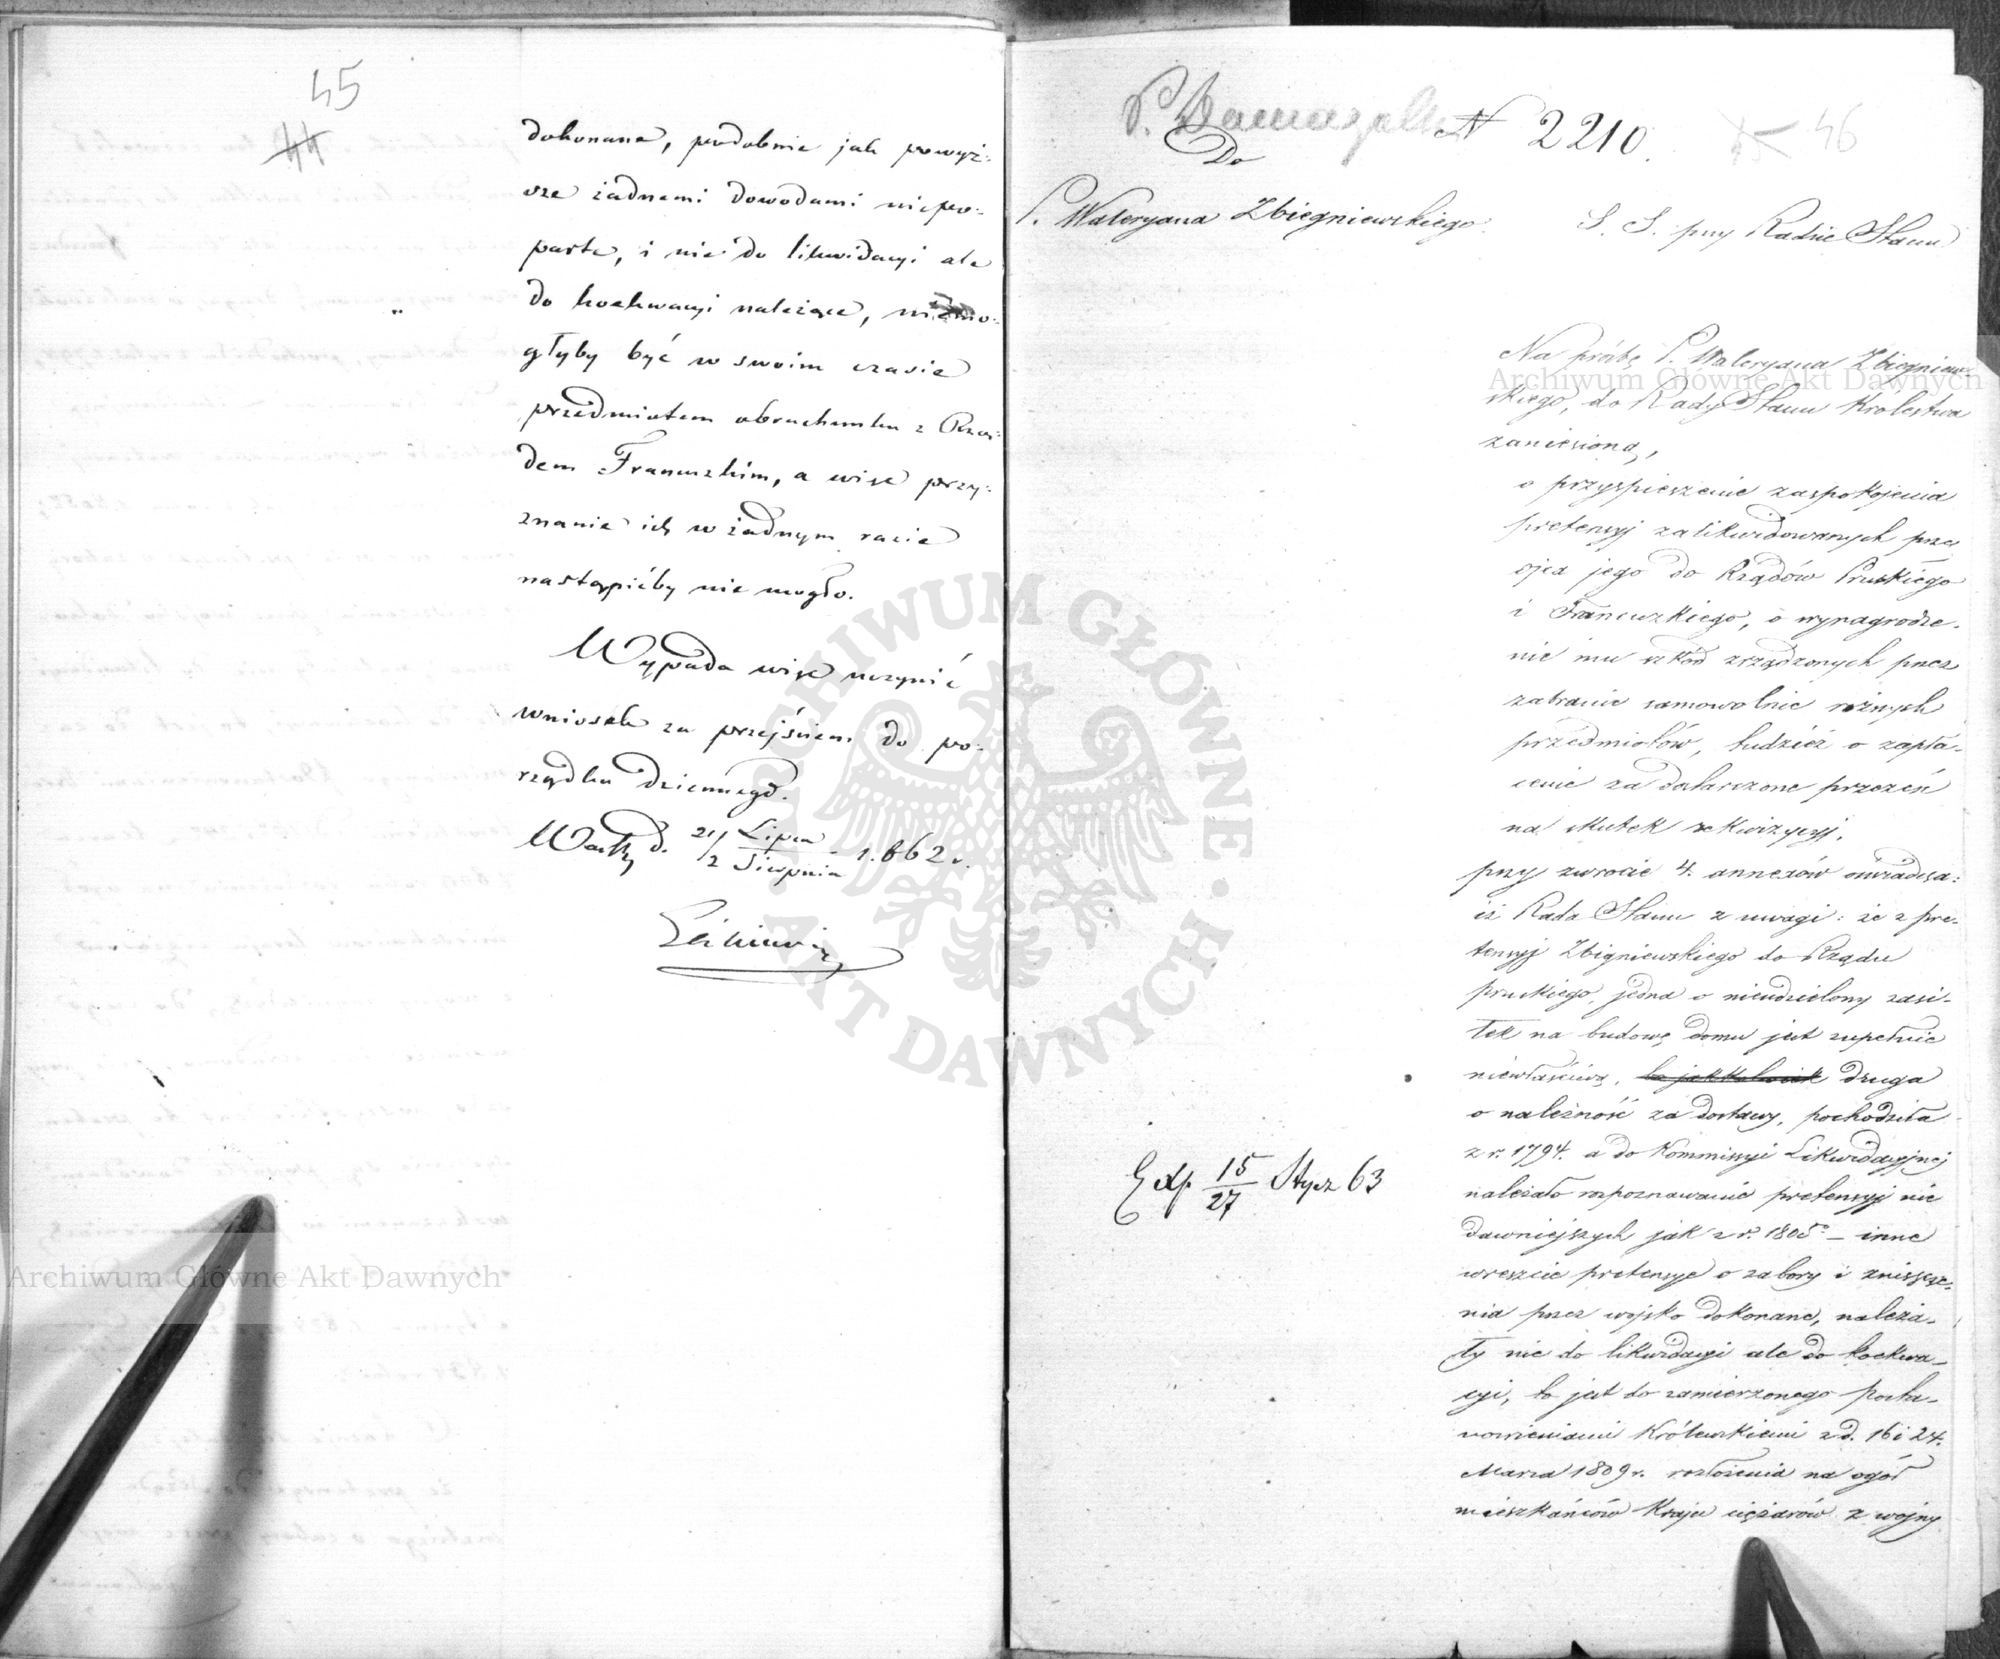 45
44
dokonane, podobnie jak powyż:
sze żadnemi dowodami niepo:
parte, i nie do likwidacyi ale
do koekwacyi należące, niemo:
głyby być w swoim czasie
przedmiotem obrachunku z Rzą:
dem Francuzkim, a więc przy:
znanie ich w żadnym razie
nastąpićby nie mogło.
Wypada więc uczynić
wniosek za przejściem do po:
rządku dziennego.
d. 21/2 Lipca/Sierpnia 1862 r.
Archiwum Główne Akt Dawnych
ARCHIWUM GŁÓWNE AKT DAWNYCH
N 2210.
45 46
Do
P. Waleryana Zbiegniewskiego.
S. S. przy Radzie Stanu
Na prośbę P. Waleryana Zbiegniew-
Archiwum Główne Akt Dawnych
skiego, do Rady Stanu Królestwa
zaniesioną,
o przyspieszenie zaspokojenia
pretensyj zalikwidowanych przez
ojca jego do Rządów Pruskiego
i Francuzkiego, o wynagrodze-
nie mu szkód zrządzonych przez
zabranie samowolnie różnych
przedmiotów, tudzież o zapła-
cenie za dostarczone przezeń
na skutek rekwizycyj,
przy zwrocie 4. annexów oświadcza:
iż Rada Stanu z uwagi: że z pre-
tensyj Zbigniewskiego do Rządu
pruskiego, jedna o nieudzielony zasi-
łek na budowę domu jest zupełnie
niewłaściwą, druga
o należność za dostawy, pochodziła
z r. 1794. a do Kommissyi Likwidacyjnej
należało rozpoznawanie pretensyj nie
dawniejszych jak z r. 1805. – inne
wreszcie pretensye o zabory i zniszcze-
nia przez wojsko dokonane, należa-
ły nie do likwidacyi ale do koekwa-
cyi, to jest do zamierzonego posta-
nowieniami Królewskiemi z d. 16 i 24.
Marca 1809 r. rozłożenia na ogół
mieszkańców Kraju ciężarów z wojny
Exp. 15/27 Stycz 63